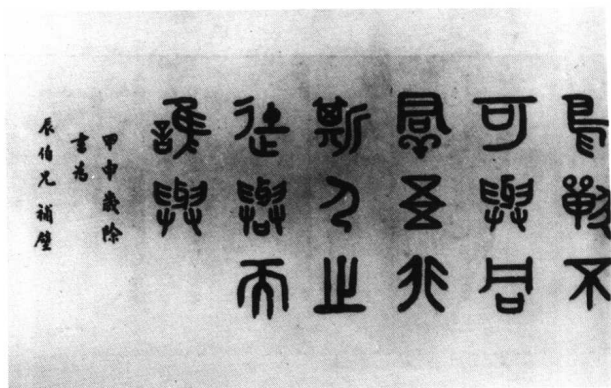 鳥獸不
可與同
羣吾非
斯人之
徒與而
誰與
甲申歲除
書為
辰伯兄補壁